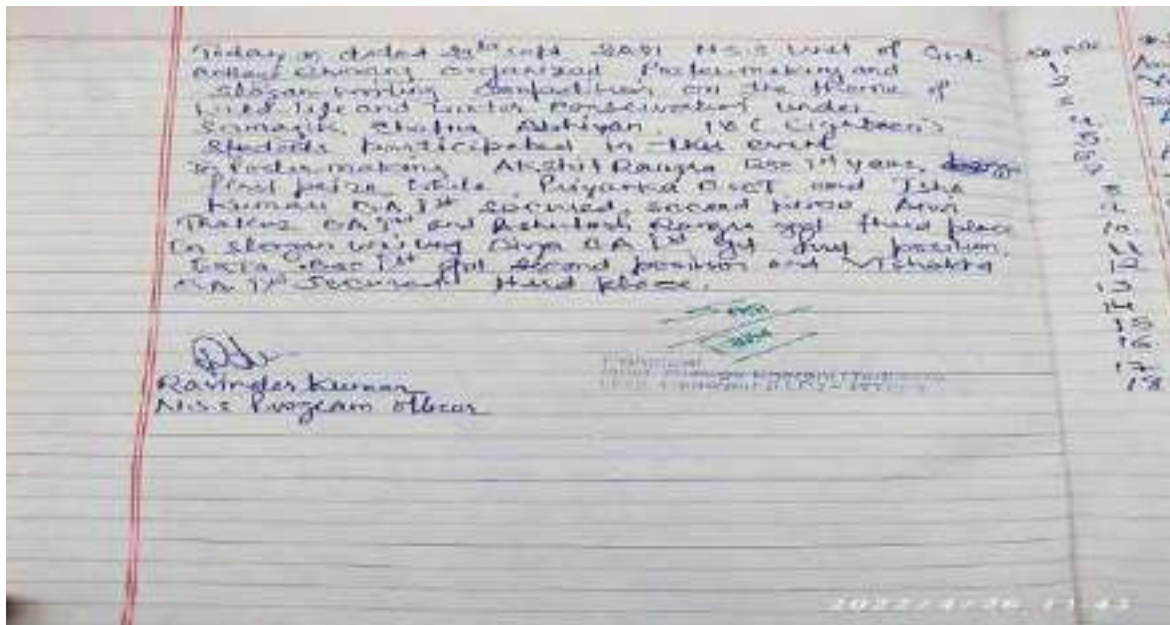 Today on dated 29th Sept 2021 N.S.S Unit of Govt.
College organized Poster making and
slogan writing Competition on the theme of
Wild life and Water Conservation under
Samajik Chetna Abhiyan. 18 (Eighteen)
Students participated in this event
In Poster making Akshit Rangra Bsc 1st year,
first prize while Priyanka and Isha
Kumari BA 1st secured second place Arun
Thakur BA and Ashutosh Rangra got third place
In slogan writing Divya BA 1st got first position.
Bsc 1st got second position and Vishakha
BA 1st Secured third place.
Ravinder Kumar
N.S.S Program officer
Principal
Sr. No.
10.
11
12
13
14
15
16
17
18
2022/4/26 11:43